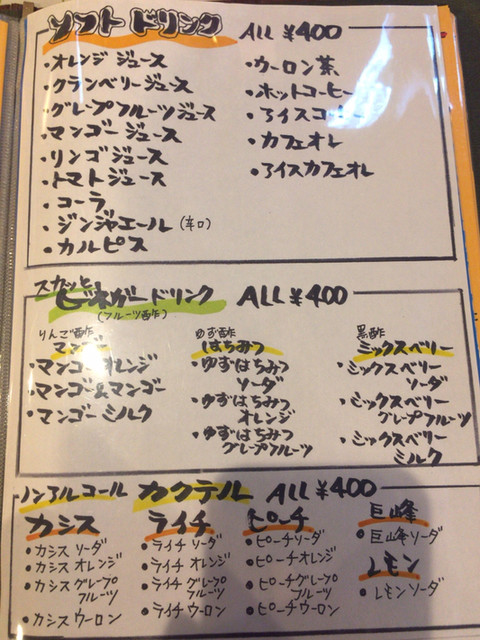 ソフトドリンク ALL ¥400
・オレンジジュース
・クランベリージュース
・グレープフルーツジュース
・マンゴージュース
・リンゴジュース
・トマトジュース
・コーラ
・ジンジャエール(辛口)
・カルピス
・ウーロン茶
・ホットコーヒー
・アイスコーヒー
・カフェオレ
・アイスカフェオレ
スカッとビネガードリンク ALL ¥400
(フルーツ酢)
りんご酢
マンゴー
・マンゴーオレンジ
・マンゴー&マンゴー
・マンゴーミルク
ゆず酢
はちみつ
・ゆずはちみつ
ソーダ
・ゆずはちみつ
オレンジ
・ゆずはちみつ
グレープフルーツ
黒酢
ミックスベリー
・ミックスベリー
ソーダ
・ミックスベリー
グレープフルーツ
・ミックスベリー
ミルク
ノンアルコール カクテル ALL ¥400
カシス
・カシスソーダ
・カシスオレンジ
・カシスグレープ
フルーツ
・カシスウーロン
ライチ
・ライチソーダ
・ライチオレンジ
・ライチグレープ
フルーツ
・ライチウーロン
ピーチ
・ピーチソーダ
・ピーチオレンジ
・ピーチグレープ
フルーツ
・ピーチウーロン
巨峰
・巨峰ソーダ
レモン
・レモンソーダ